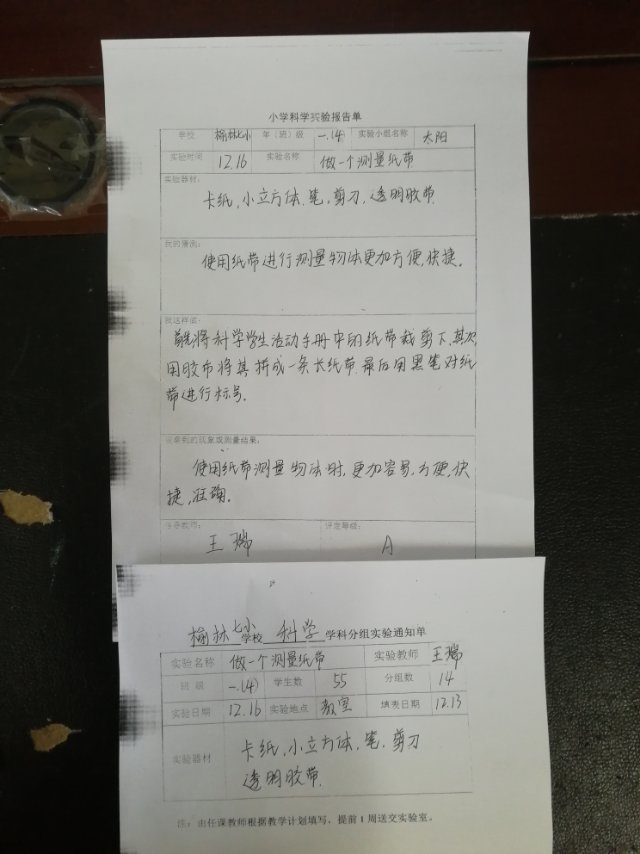 小学科学实验报告单
学校 榆林七小 年(班)级 一.14) 实验小组名称 太阳
实验时间 12.16 实验名称 做一个测量纸带
实验器材:
卡纸,小立方体.笔,剪刀,透明胶带.
我的猜测:
使用纸带进行测量物法更加方便,快捷。
我这样做:
首先将科学学生活动手册中的纸带裁剪下,其次
用胶布将其拼成一条长纸带.最后用黑笔对纸
带进行标号。
观察到的现象或测量结果:
使用纸带测量物法时,更加容易,方便,快
捷,准确。
指导教师: 评定等级:
王瑞 A
榆林七小学校 科学 学科分组实验通知单
实验名称 做一个测量纸带 实验教师 王瑞
班级 一.14) 学生数 55 分组数 14
实验日期 12.16 实验地点 教室 填表日期 12.13
实验器材 卡纸,小立方体,笔,剪刀
透明胶带.
注:由任课教师根据教学计划填写,提前1周送交实验室。